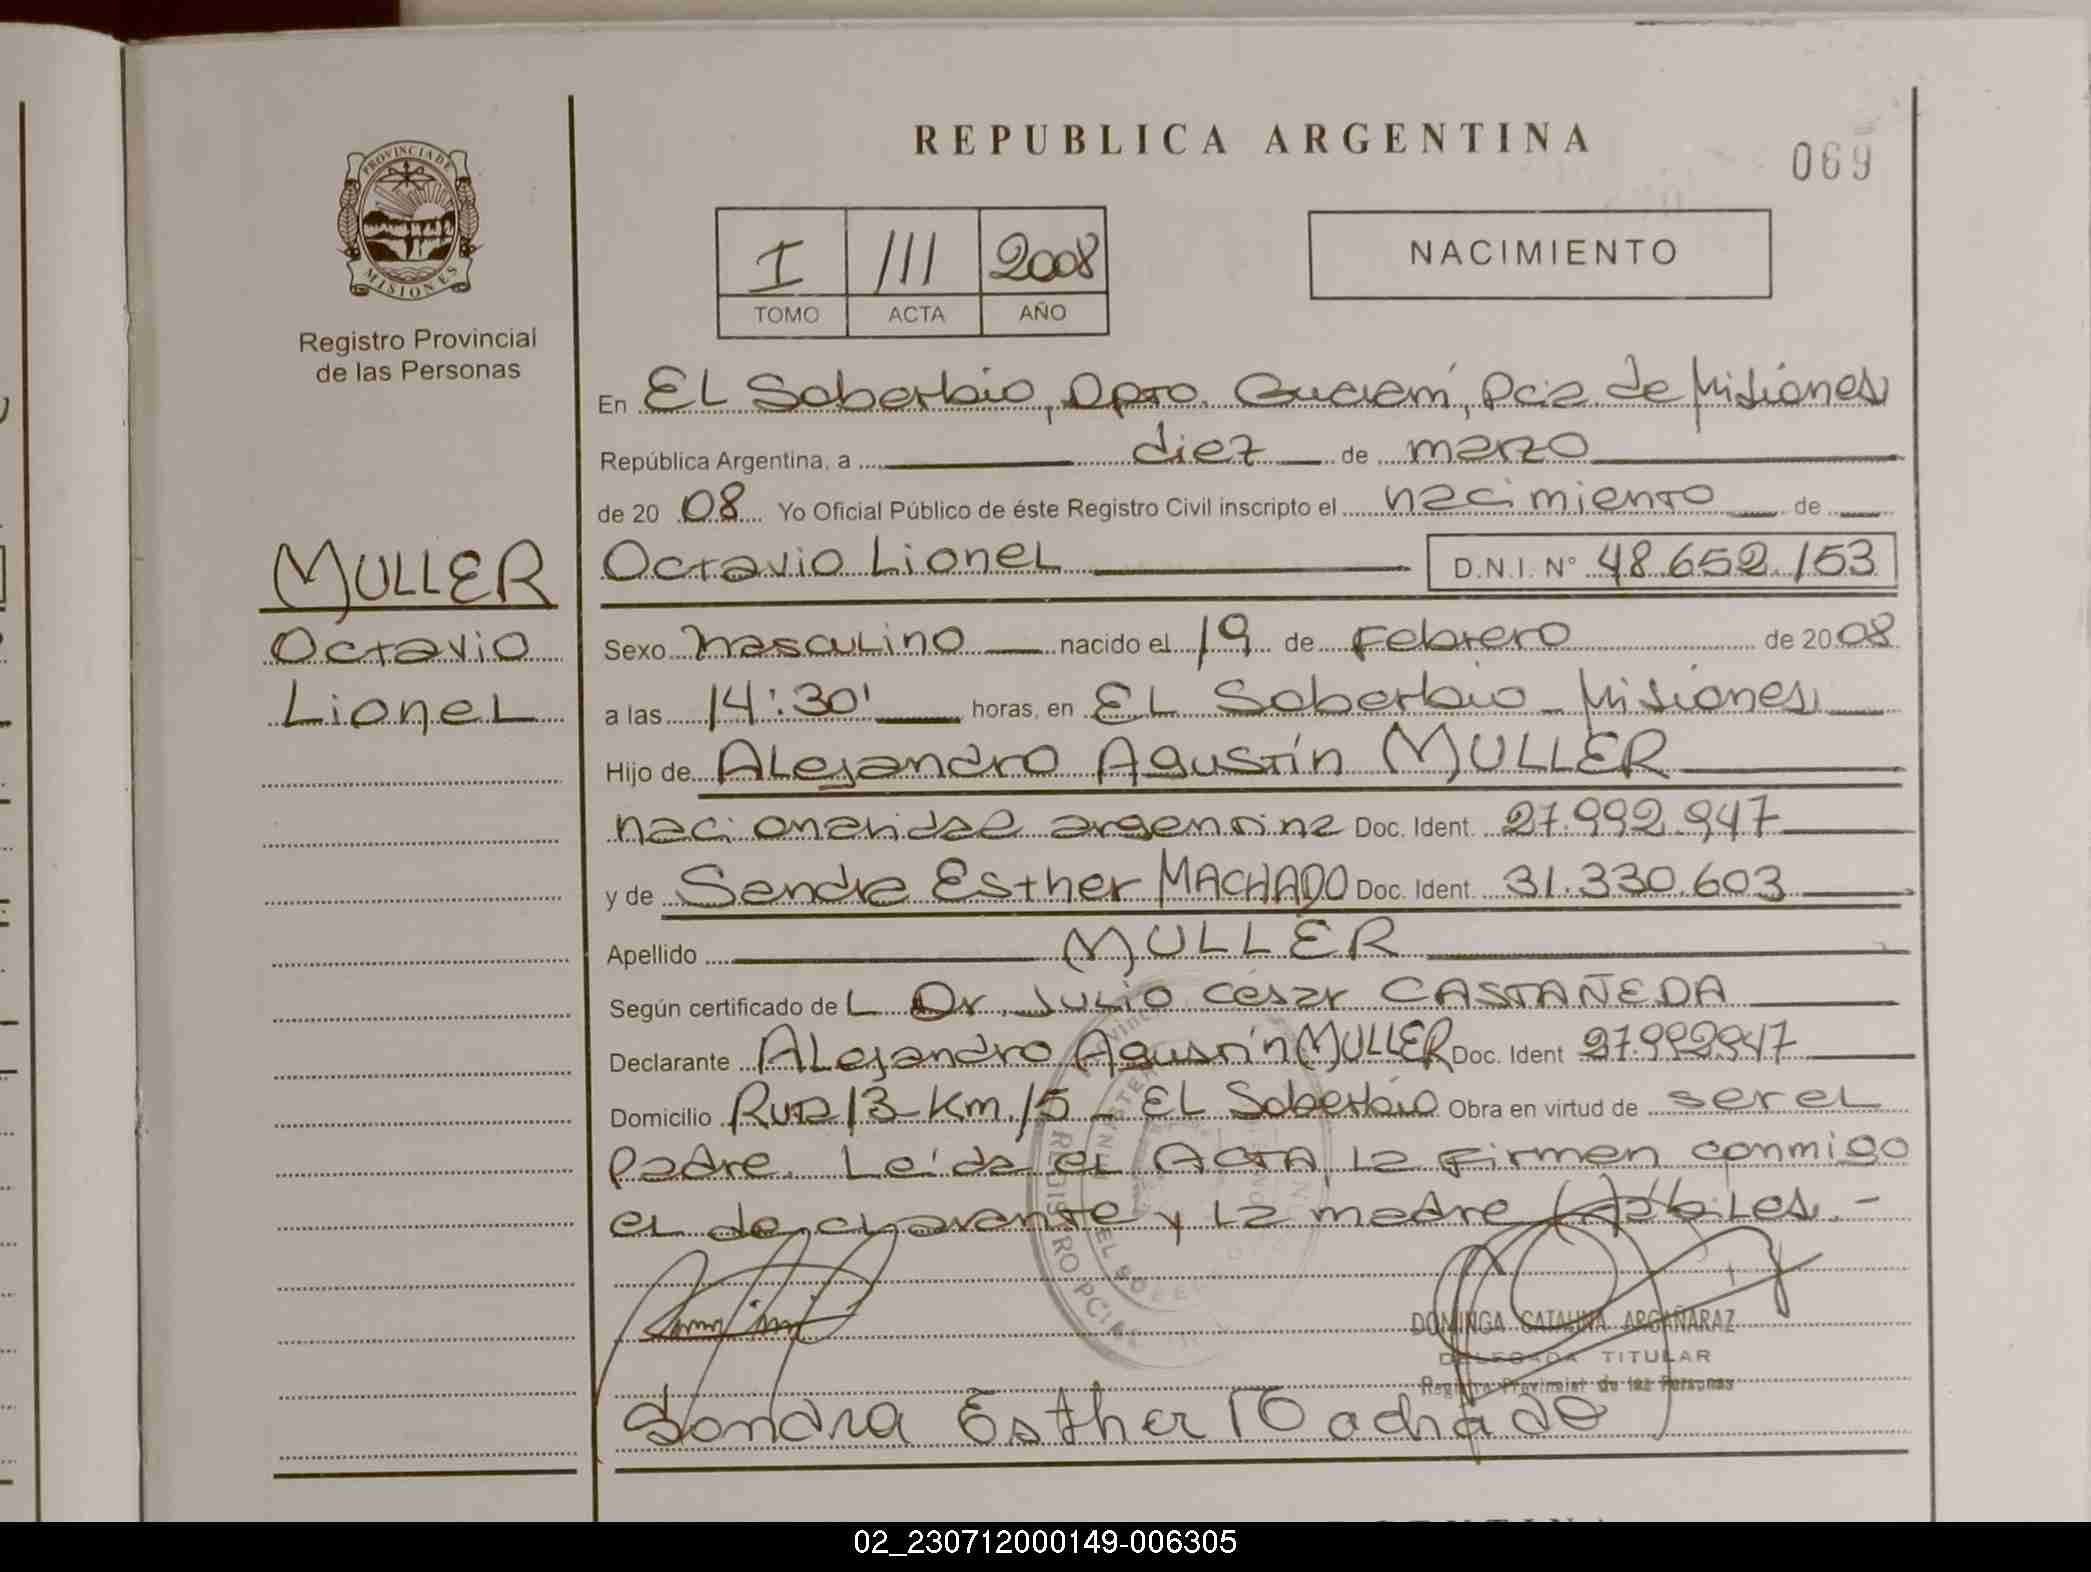 REPUBLICA ARGENTINA
069
PROVINCIA DE
MISIONES
Registro Provincial
de las Personas
I 111 2008
TOMO ACTA AÑO
NACIMIENTO
En EL Soberbio, Dpto. Guaraní, Pcia de Misiones
República Argentina, a diez de marzo
de 20 08 Yo Oficial Público de éste Registro Civil inscripto el nacimiento de
MULLER
Octavio
Lionel
Octavio Lionel D.N.I. N° 48.652.153
Sexo masculino nacido el 19 de Febrero de 20 08
a las 14:30' horas, en EL Soberbio - Misiones
Hijo de Alejandro Agustín MULLER
nacionalidad argentina Doc. Ident. 27.992.947
y de Sandra Esther MACHADO Doc. Ident. 31.330.603
Apellido MULLER
Según certificado de L Dr. Julio César CASTAÑEDA
Declarante Alejandro Agustín MULLER Doc. Ident 27.992947
Domicilio Ruta 13 Km. 15 - EL Soberbio Obra en virtud de ser el
padre. Leída el ACTA, la firman conmigo
el declarante y la madre hábiles. -
DOMINGA CATALINA ARGAÑARAZ
DELEGADA TITULAR
Registro Provincial de las Personas
Sandra Esther Machado
02_230712000149-006305